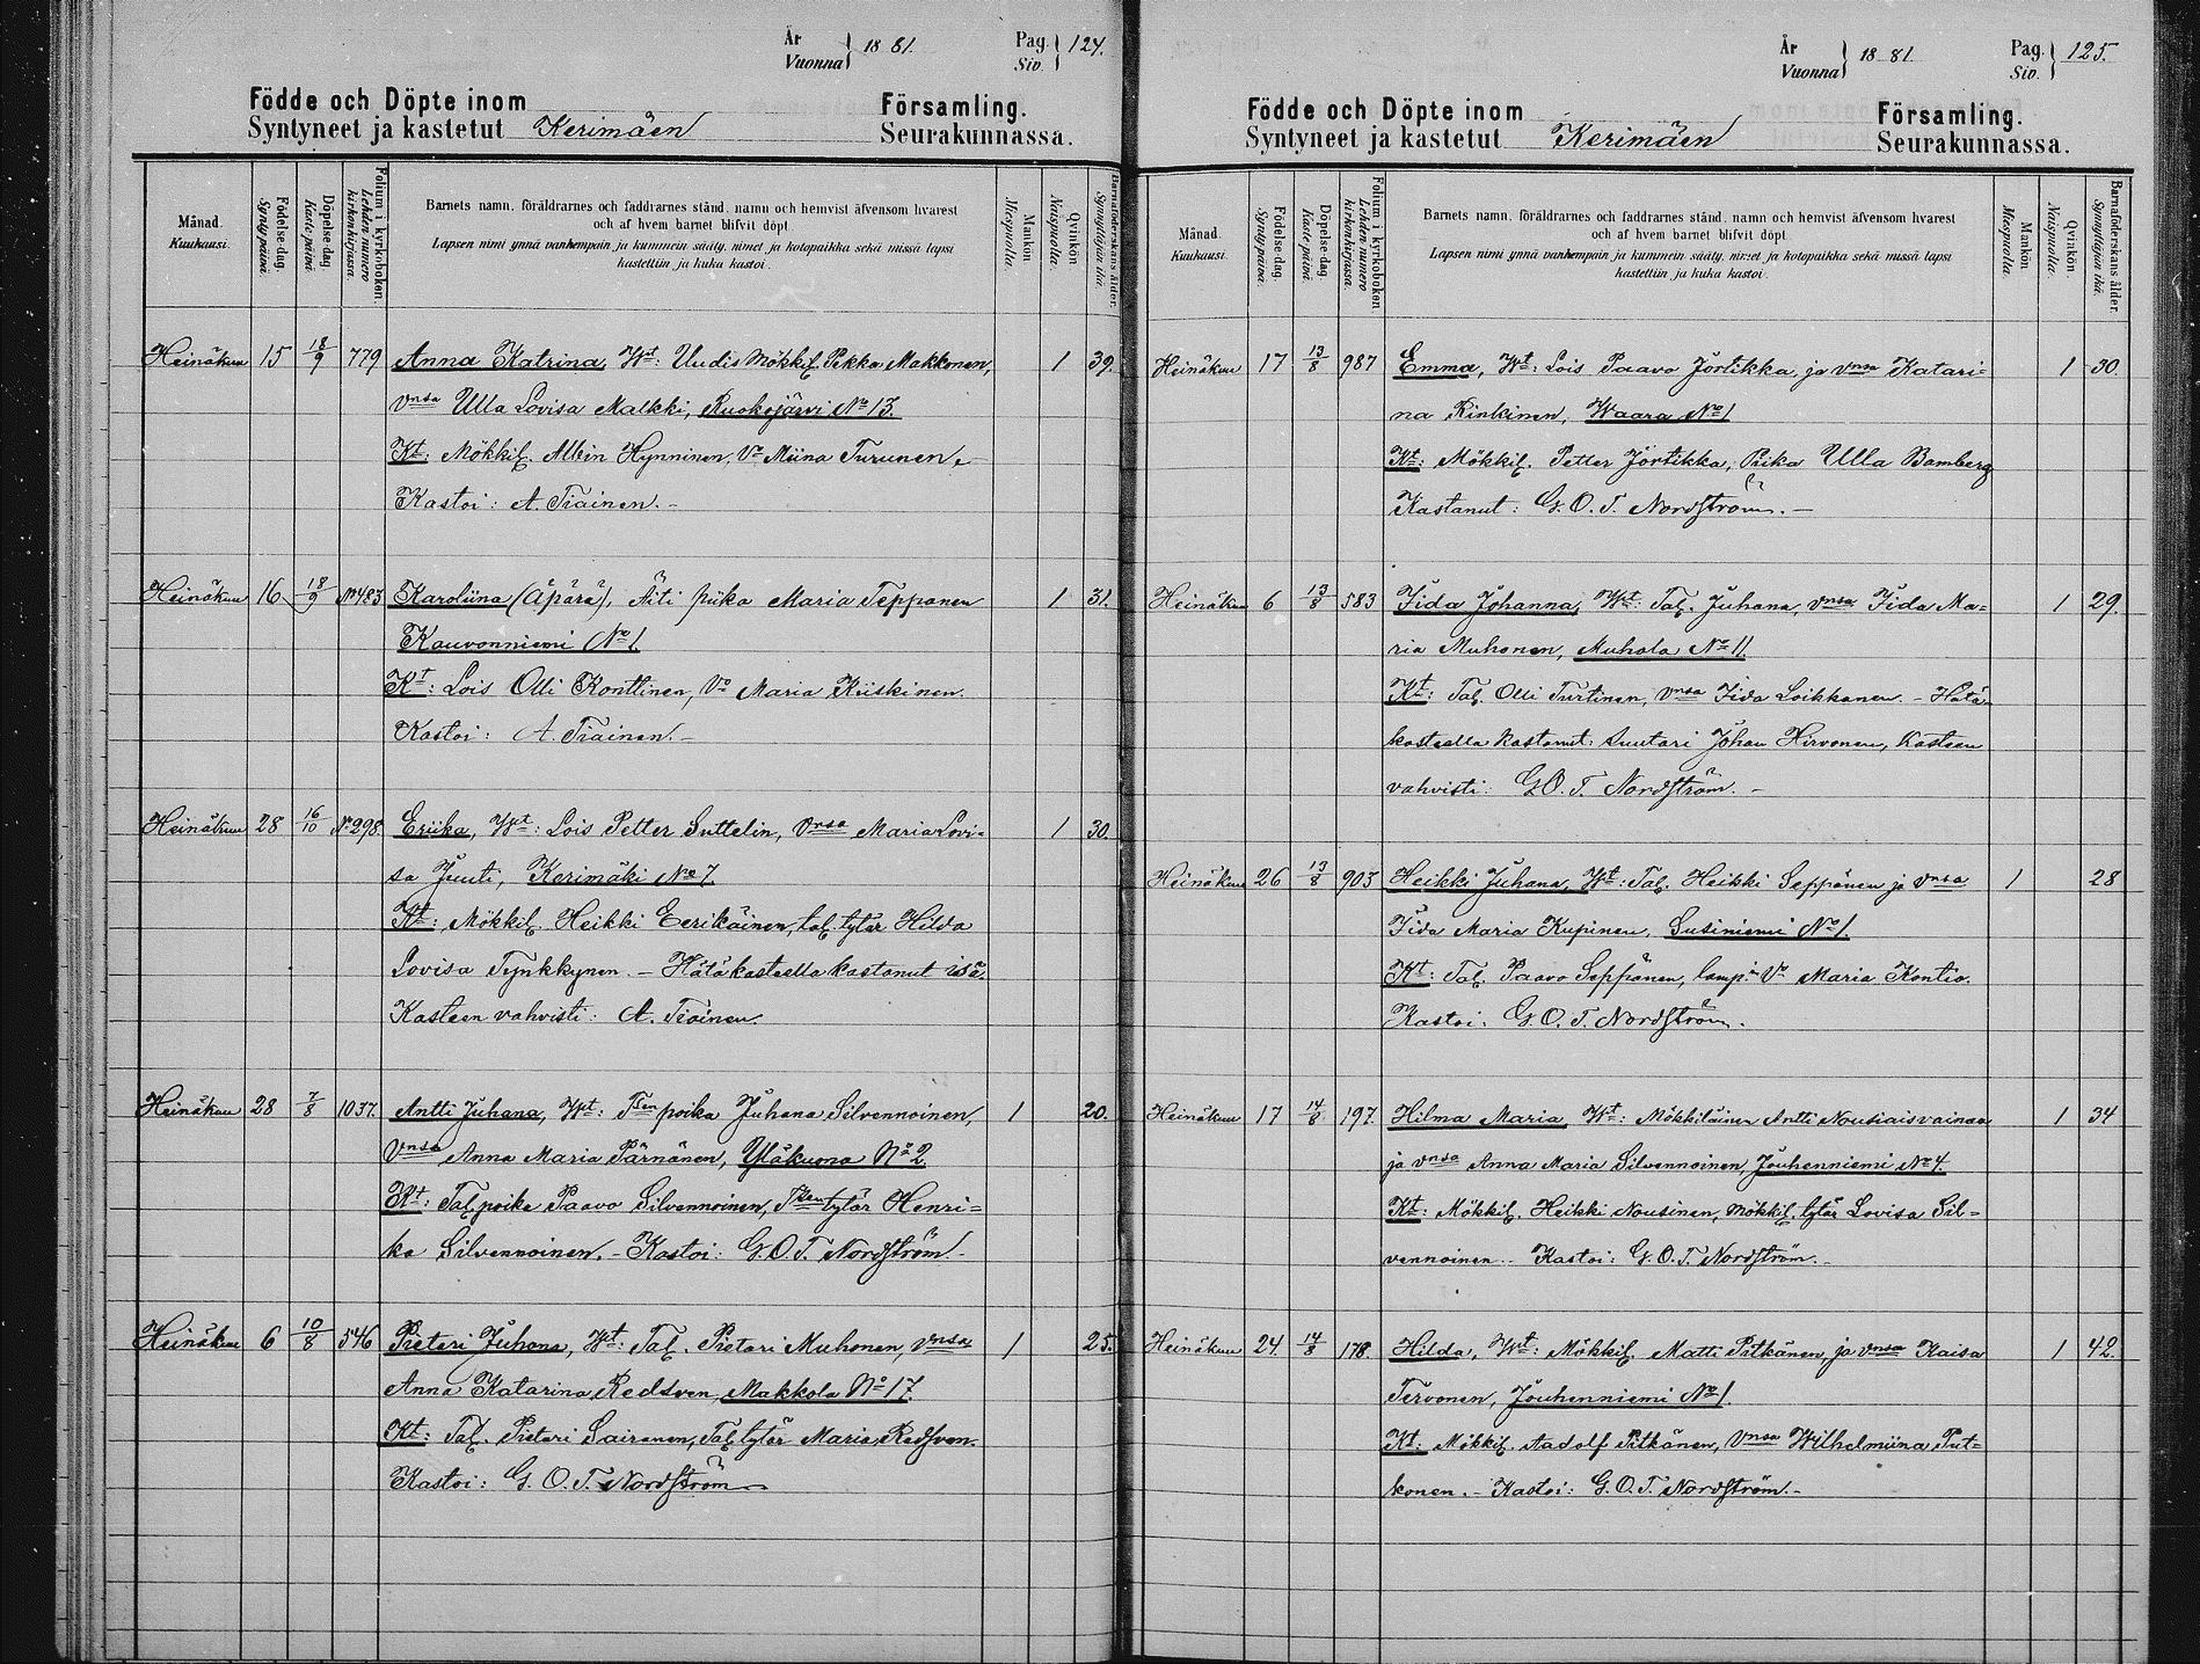 År
Vuonna 1881.
Pag.
Siv. 124.
Födde och Döpte inom Församling.
Syntyneet ja kastetut Kerimäen Seurakunnassa.
Månad.
Kuukausi.
Födelse-dag.
Syntypäivä.
Döpelse-dag
Kastepäivä.
Folium i kyrkoboken.
Lehden numero
kirkonkirjassa.
Barnets namn, föräldrarnes och faddrarnes stånd, namn och hemvist äfvensom hvarest
och af hvem barnet blifvit döpt.
Lapsen nimi ynnä vanhempain ja kummein sääty, nimet ja kotopaikka sekä missä lapsi
kastettiin ja kuka kastoi.
Mankön
Miespuolia.
Qvinkön
Naispuolia.
Barnaföderskans ålder.
Synnyttäjän ikä.
Heinäkuu 15 18/9 779 Anna Katrina, Wt: Uudis Mökkil. Pekka Makkonen, 1 39.
Vnsa Ulla Lovisa Malkki, Ruokojärvi No 13.
Kt: Mökkil. Albin Hynninen, Vo Miina Turunen.
Kastoi: A. Tiainen. -
Heinäkuu 16 18/9 No 483 Karoliina (Äpärä), Äiti piika Maria Tepponen 1 31.
Kauvonniemi No 1.
Kt: Lois Olli Konttinen, Vo Maria Kiiskinen.
Kastoi: A. Tiainen. -
Heinäkuu 28 16/10 No 298. Eriika, Wt: Lois Petter Suttelin, Vnsa Maria Lovi= 1 30.
sa Juuti, Kerimäki No 7.
Kt: Mökkil. Heikki Eerikäinen, tal. tytär Hilda
Lovisa Tynkkynen. - Hätäkasteella kastanut isä.
Kasteen vahvisti: A. Tiainen.
Heinäkuu 28 7/8 1037. Antti Juhana, Wt: Tsen poika Juhana Silvennoinen, 1 20.
Vnsa Anna Maria Pärnänen, Yläkuona No 2.
Kt: Tal. poika Paavo Silvennoinen, Tsen tytär Henri=
ka Silvennoinen. - Kastoi: G. O. T. Nordström. -
Heinäkuu 6 10/8 546 Pietari Juhana, Wt: Tal. Pietari Muhonen, Vnsa 1 25.
Anna Katarina Redsven, Makkola No 17.
Kt: Tal. Pietari Sairanen, Tal. tytär Maria Redsven.
Kastoi: G. O. T. Nordström
År
Vuonna 1881.
Pag.
Siv. 125.
Födde och Döpte inom Församling.
Syntyneet ja kastetut Kerimäen Seurakunnassa.
Månad.
Kuukausi.
Födelse-dag.
Syntypäivä.
Döpelse-dag.
Kastepäivä.
Folium i kyrkoboken
Lehden numero
kirkonkirjassa.
Barnets namn, föräldrarnes och faddrarnes stånd, namn och hemvist äfvensom hvarest
och af hvem barnet blifvit döpt.
Lapsen nimi ynnä vanhempain ja kummein sääty, nimet ja kotopaikka sekä missä lapsi
kastettiin ja kuka kastoi.
Mankön
Miespuolia.
Qvinkön.
Naispuolia.
Barnaföderskans ålder.
Synnyttäjän ikä.
Heinäkuu 17 13/8 987 Emma, Wt: Lois Paavo Jortikka, ja Vnsa Katari= 1 30.
na Rinkinen, Waara No 1
Kt: Mökkil. Petter Jortikka, Piika Ulla Bamberg
Kastanut: G. O. T. Nordström. -
Heinäkuu 6 13/8 583 Iida Johanna, Wt: Tal. Juhana, Vnsa Iida Ma= 1 29.
ria Muhonen, Muhola No 11.
Kt: Tal. Olli Turtinen, Vnsa Iida Loikkanen. - Hätä-
kasteella kastanut: suutari Johan Hirvonen, kasteen
vahvisti: G. O. T. Nordström. -
Heinäkuu 26 13/8 903 Heikki Juhana, Wt: Tal. Heikki Seppänen ja Vnsa 1 28
Iida Maria Kupinen, Susiniemi No 1.
Kt: Tal. Paavo Seppänen, lamp. Vo Maria Kontio.
Kastoi: G. O. T. Nordström.
Heinäkuu 17 14/8 197. Hilma Maria, Wt: Mökkiläinen Antti Nousiaisvainaa 1 34
ja Vnsa Anna Maria Silvennoinen, Jouhenniemi No 4.
Kt: Mökkil. Heikki Nousinen, Mökkil. tytär Lovisa Sil=
vennoinen. - Kastoi: G. O. T. Nordström. -
Heinäkuu 24. 14/8 178. Hilda, Wt: Mökkil. Matti Pitkänen, ja Vnsa Kaisa 1 42.
Tervonen, Jouhenniemi No 1.
Kt: Mökkil. Aadolf Pitkänen, Vnsa Wilhelmiina Put=
konen. - Kastoi: G. O. T. Nordström. -